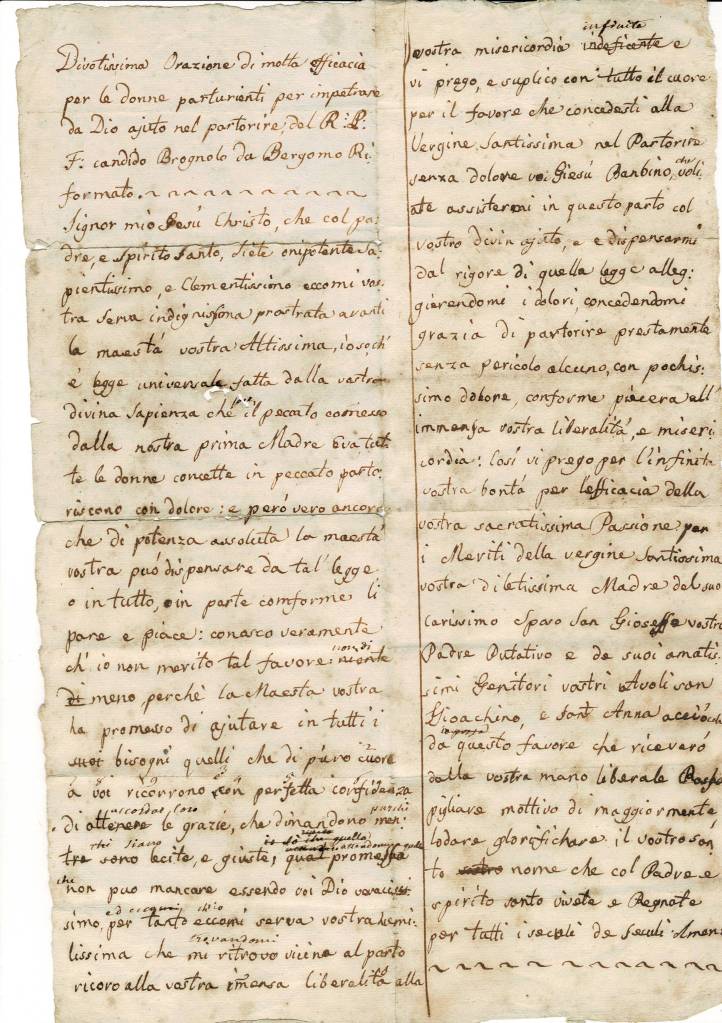 Divotissima Orazione di molta efficacia
per le donne parturienti per impetrare
da Dio ajuto nel partorire, del R: P:
F: candido Brognolo da Bergomo Ri
formato.
Signor mio Gesù Christo, che col pa
dre, e Spirito Santo, siete onipotente Sa,
pientissimo, e Clementissimo eccomi vos:
tra Serva indignissima prostrata avanti
la maestá vostra Altissima, io sò, ch'
é legge universale fatta dalla vostra
divina Sapienza che il peccato comesso
dalla nostra prima Madre Eva tut
te le donne concette in peccato parto,
riscono con dolore: e peró vero ancora
che di potenza assoluta la maestá
vostra puó dispensare da tal' legge
o in tutto, o in parte comforme li
pare e piace: conosco veramente
ch' io non merito tal favore: niente
non di
di meno, perche la Maesta vostra
ha promesso di ajutare in tutti i
suoi bisogni quelli che di puro cuore
á voi ricorrono con perfetta confidenza
di ottenere le grazie, che dimandono men,
tre sono lecite, e giuste, qual promessa
che
non puo mancare essendo voi Dio veraciss
simo, per tanto eccomi serva vostra hemi:
trovandomi
lissima che mi ritrovo vicina al parto
ricoro alla vostra immensa liberalitá alla
infinita
vostra misericordia indeficente e
vi prego, e suplico con tutto il cuore
per il favore che concedesti alla
Vergine Santissima nel Partorire
senza dolore voi Giesú Banbino, voli
che
ate assistermi in questo parto col
vostro divin ajuto, e e dispensarmi
dal rigore di quella legge alleg:
gierendomi i dolori, concedendomi
grazia di partorire prestamente
senza pericolo alcuno, con pochis:
simo dolore, conforme piacera all'
immensa vostra liberalitá, e miseri
cordia: Cosí vi prego per l'infinita
vostra bontá per l'efficacia della
vostra sacratissima Passione per
i Meriti della vergine Santissima
vostra diletissima Madre del suo
carissimo Sposo San Gioseffe vostro
Padre Putativo e de suoi amatis:
simi Genitori vostri Avoli san
Gioachino, e Sant' Anna
da questo favore che riceveró
dalla vostra mano liberale Possa
pigliare mottivo di maggiormente
lodare, glorifichare il vostro san
to nome che col Padre, e
spirito santo vivete e Regnate
per tutti i secoli de Secoli Amen